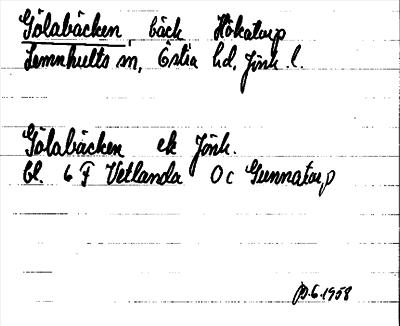 Gölabäcken, bäck Hökatorp
Lemnhults sn, Östra hd, Jönk. l.
Gölabäcken ek Jönk.
bl. 6 F Vetlanda 0 c Gunnatorp
6.1958